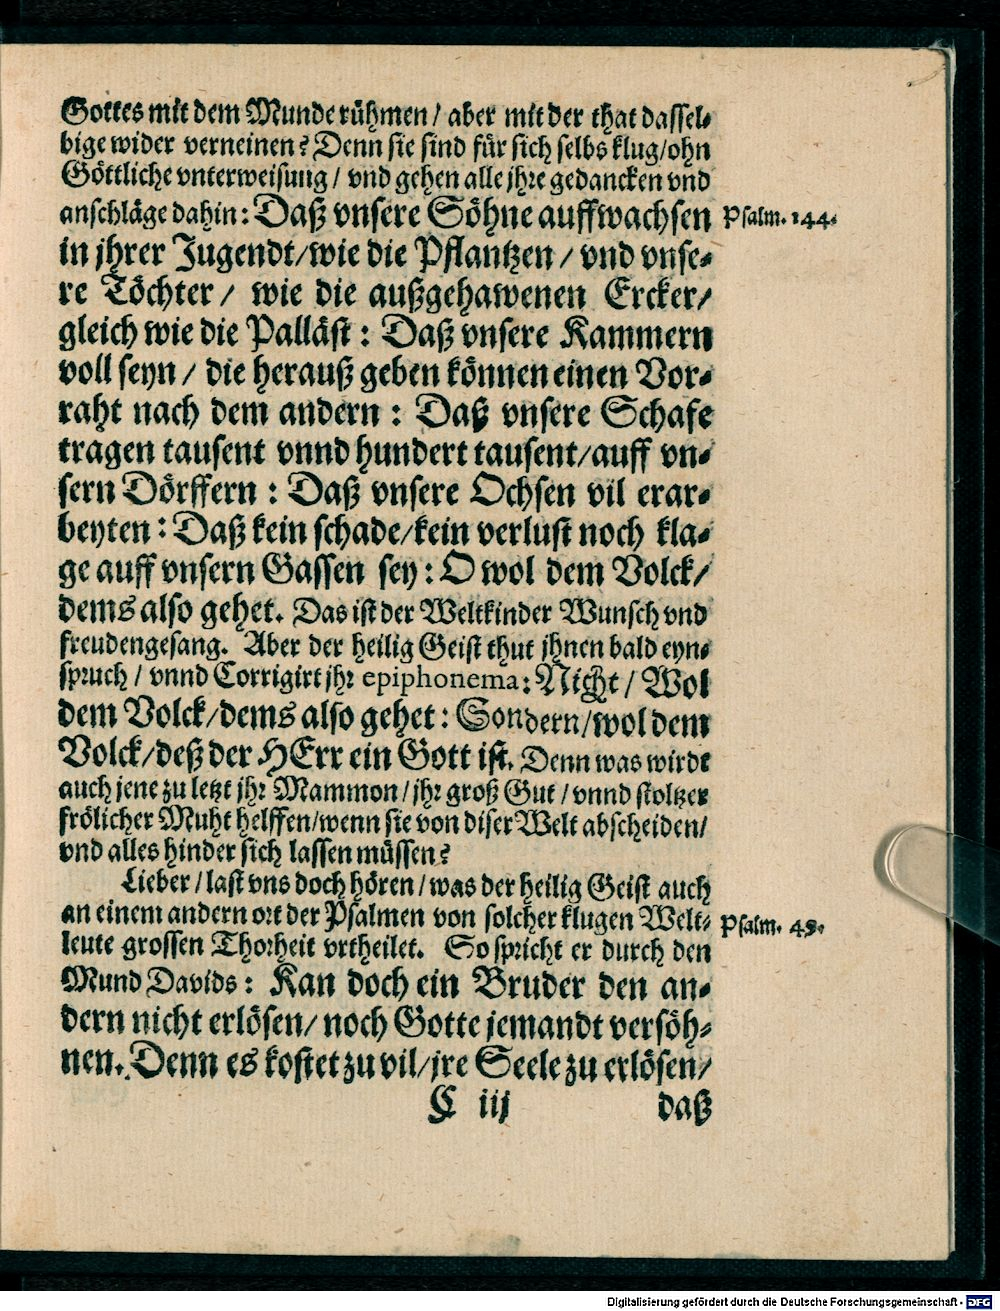 Gottes mit dem Munde rühmen / aber mit der that dassel⸗
bige wider verneinen? Denn sie sind für sich selbs klug/ohn
Göttliche vnterweisung / vnd gehen alle jhre gedancken vnd
anschläge dahin: Daß vnsere Söhne auffwachsen Psalm. 144.
in jhrer Jugendt/wie die Pflantzen / vnd vnse⸗
re Töchter / wie die außgehawenen Ercker/
gleich wie die Palläst : Daß vnsere Kammern
voll seyn / die herauß geben können einen Vor⸗
raht nach dem andern : Daß vnsere Schafe
tragen tausent vnnd hundert tausent/auff vn⸗
sern Dörffern : Daß vnsere Ochsen vil erar⸗
beyten : Daß kein schade/kein verlust noch kla⸗
ge auff vnsern Gassen sey : O wol dem Volck/
dems also gehet. Das ist der Weltkinder Wunsch vnd
freudengesang. Aber der heilig Geist thut jhnen bald eyn⸗
spruch / vnnd Corrigirt jhr epiphonema: Nicht / Wol
dem Volck/dems also gehet : Sondern/wol dem
Volck/deß der HErr ein Gott ist. Denn was wirdt
auch jene zu letzt jhr Mammon/jhr groß Gut / vnnd stoltzer
frölicher Muht helffen/wenn sie von diser Welt abscheiden/
vnd alles hinder sich lassen müssen?
Lieber / last vns doch hören / was der heilig Geist auch
an einem andern ort der Psalmen von solcher klugen Welt⸗ Psalm. 49.
leute grossen Thorheit vrtheilet. So spricht er durch den
Mund Davids : Kan doch ein Bruder den an⸗
dern nicht erlösen/ noch Gotte jemandt versöh⸗
nen. Denn es kostet zu vil/jre Seele zu erlösen/
C iij daß
Digitalisierung gefördert durch die Deutsche Forschungsgemeinschaft - DFG